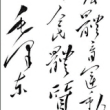 體育運動
民體質
毛澤東